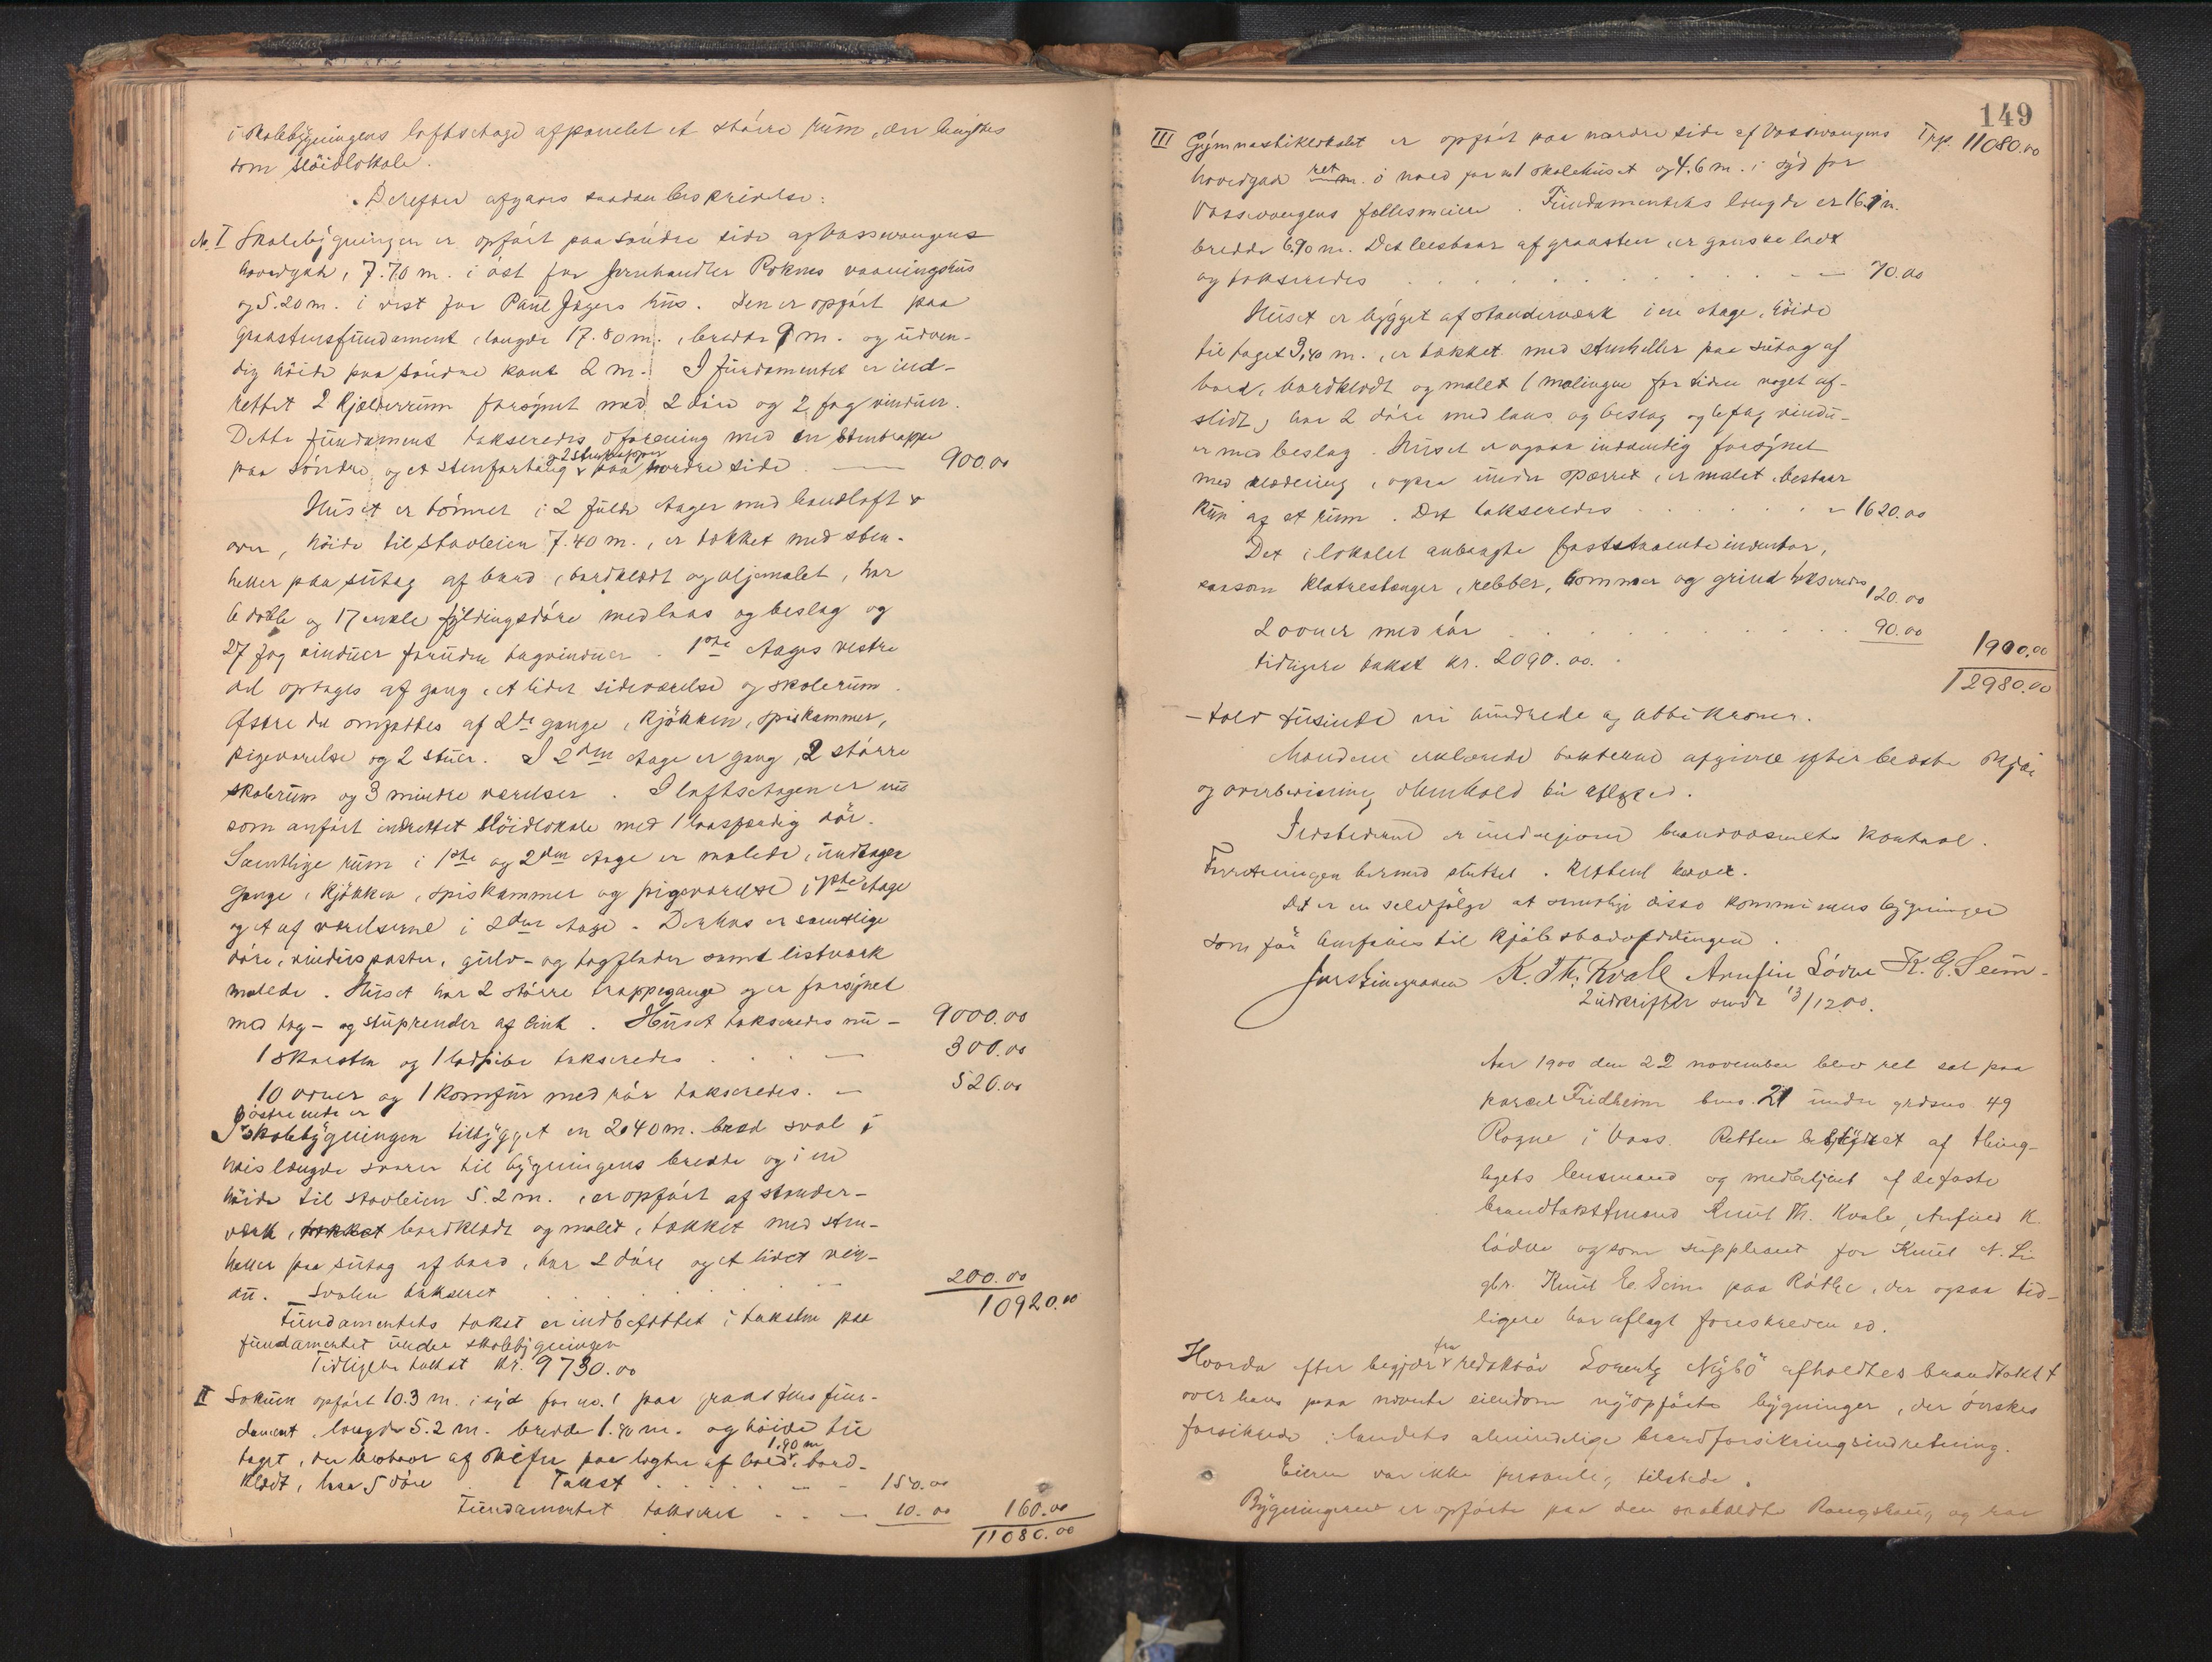 i skolebygningens loftsetage afpanelet et større rum, der benyttes
som sløidlokale.
Derefter afgaves saadan beskrivelse:
No. I Skolebygningen er opført paa søndre side af Vossevangens
hovedgade, 7.70 m. i øst for Jernhandler Roknes vaaningshus
og 5.20 m. i vest for Paul Jægers hus. Den er opført paa
graastensfundament, længde 17.80 m., bredde 9 m. og udven-
dig høide paa søndre kant 2 m. I fundamentet er ind-
rettet 2 kjælderrum forsynet med 2 døre og 2 fag vinduer.
Dette fundament takseredes i forening med en stentrappe
paa søndre og et stenfortaug og 2 stentrapper paa nordre side — 900.00
Huset er tømret i 2 fulde etager med handloft
over, høide til stavleien 7.40 m., er tækket med sten-
heller paa sutag af bord, bordklædt og oljemalet, har
6 doble og 17 enkle fyldingsdøre med laas og beslag og
27 fag vinduer foruden tagvinduer. 1ste etages vestre
del optages af gang, et lidet sideværelse og skolerum.
Østre del omfattes af 2de gange, kjøkken, spiskammer,
pigeværelse og 2 stuer. I 2den etage er gang, 2 større
skolerum og 3 mindre værelser. I loftsetagen er nu
som anført indrettet sløidlokale med 1 laasfærdig dør.
Samtlige rum i 1ste og 2den etage er malede, undtagen
gange, kjøkken, spiskammer og pigeværelse i 1ste etage
og et af værelserne i 2den etage. Derhos er samtlige
døre, vinduesposter, gulv- og tagflader samt listværk
malede. Huset har 2 større trappegange og er forsynet
med tag- og stuprender af zink. Huset takseredes nu — 9000.00
1 skorsten og 1 ladpibe takseredes . . . — 300.00
10 ovner og 1 komfur med rør takseredes. — 520.00
Paa østre ende er
I skolebygningen tilbygget en 2.40 m. bred sval i
hvis længde svarer til bygningens bredde og i en
høide til stavleien 5.2 m., er opført af stænder-
værk, tækket bordklædt og malet, tækket med sten-
heller paa sutag af bord, har 2 døre og et lidet vin-
du. Svalen takseret . . . 200.00
10920.00
Fundamentets takst er indbefattet i taksten paa
fundamentet under skolebygningen
Tidligere takst kr. 9730.00
II Sokum opført 10.3 m. i syd for no. 1 paa graastensfun-
dament, længde 5.2 m. bredde 1.90 m. og høide til
taget 1.90 m, der bestaar af skifer paa lægter af bord, bord-
klædt, har 5 døre. Takst . . . — 150.00
Fundamentet takseret . . — 10.00 160.00
11080.00
149
III Gymnastiklokalet er opført paa nordre side af Vossevangens Trp. 11080.00
hovedgade ret m. i nord for no 1 skolehuset og 4.6 m. i syd for
Vossevangens fællesmeieri. Fundamentets længde er 16.1 m.
bredde 6.90 m. Det bestaar af graasten, er ganske lavt
og takseredes . . . — 70.00
Huset er bygget af stænderværk i en etage, høide
til taget 3,40 m., er tækket med stenheller paa sutag af
bord, bordklædt og malet (malingen for tiden noget af-
slidt) har 2 døre med laas og beslag og 6 fag vindu-
er med beslag. Huset er ogsaa indvendig forsynet
med klædning, ogsaa under sperret, er malet, bestaar
kun af et rum. Det takseredes . . . - 1620.00
Det i lokalet anbragte faststaaende inventar,
saasom klatrestænger, ribber, bommer og grind takseredes 120.00
2 ovner med rør . . . 90.00 1900.00
tidligere takst kr. 2090.00. 12980.00
- tolv tusinde ni hundrede og otti kroner.
Mændene erklærede taksterne afgivne efter bedste skjøn
og overbevisning i henhold til aflagt ed.
Ildstederne er undergivne brandvæsenets kontrol.
Forretningen hermed sluttet. Retten hævet.
Det er en selvfølge at samtlige disse kommunens bygninger
som før henføres til kjøbstadafdelingen.
K. Th. Kvale Arnfin Lødve K. E. Seim
2 udskrifter sendt 13/12 00.
Aar 1900 den 22 november blev ret sat paa
parcel Fridheim bno. 21 under grdsno. 49
Rogne i Voss. Retten betjent af thing-
lagets lensmand og medbetjent af de faste
brandtakstmænd Knut Th. Kvale, Arnfind K.
Lødve og som suppleant for Knut N. Li
gbr. Knut E. Seim paa Røthe, der ogsaa tid-
ligere har aflagt foreskreven ed.
Hvorda efter begjær fra redaktør Lorentz Nybø afholdtes brandtakst
over hans paa nævnte eiendom nyopførte bygninger, der ønskes
forsikrede i landets almindelige brandforsikringsindretning.
Eieren var ikke personlig tilstede.
Bygningerne er opførte paa den saakaldte Rongshaug og har